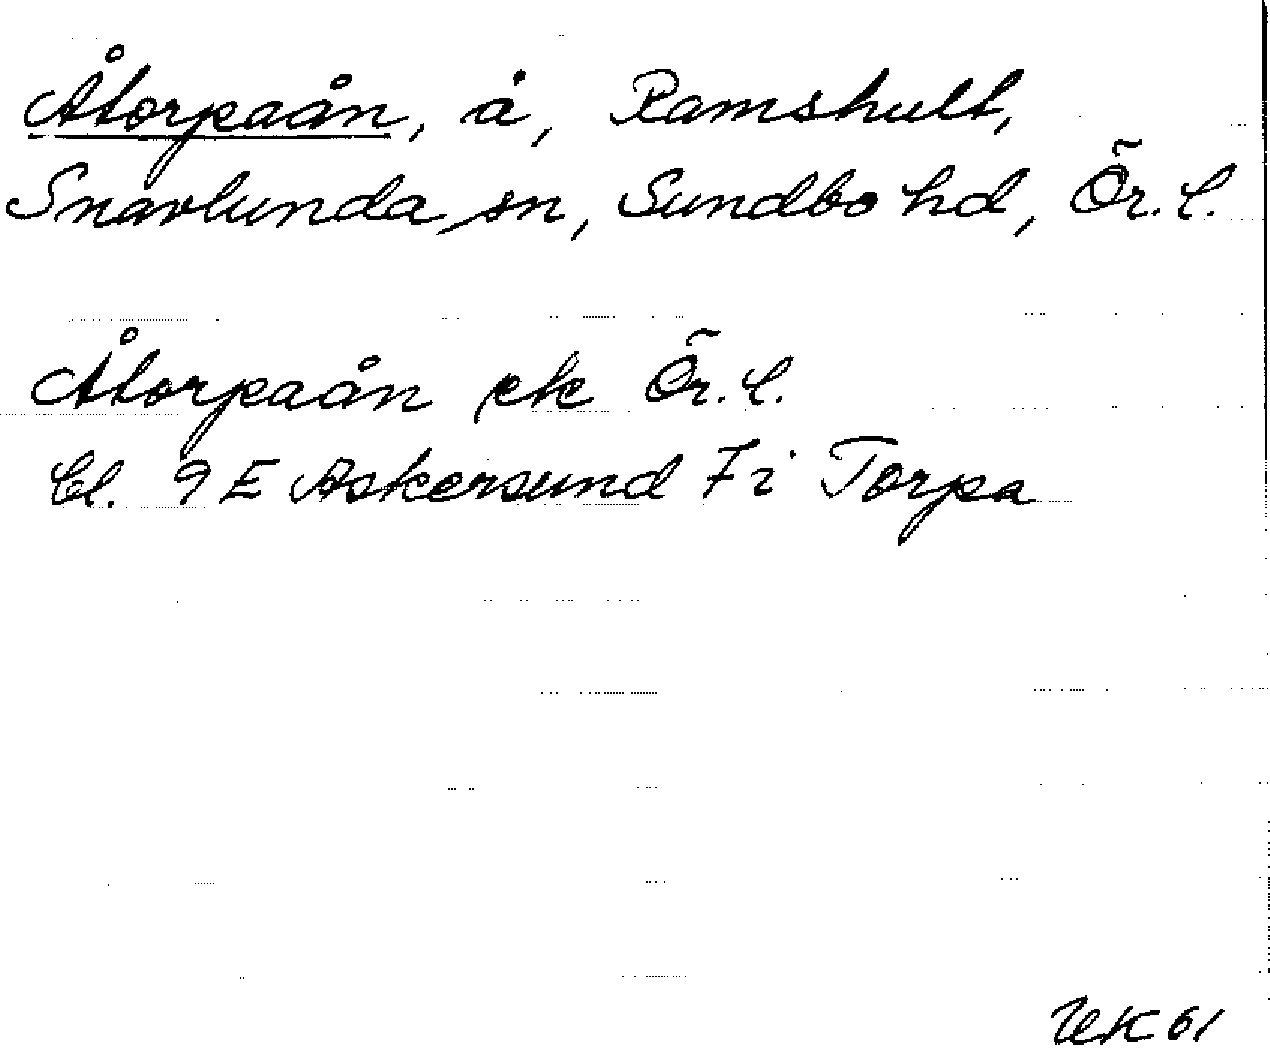 Åtorpaån, å, Ramshult,
Snavlunda sn, Sundbo hd, Ör. l.
Åtorpaån ek Ör. l.
bl. 9 E Askersund 7 i Torpa
UK 61